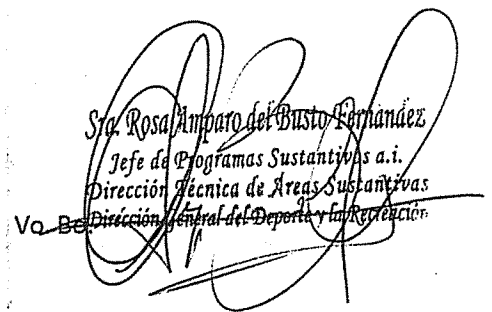 Sra. Rosa Amparo del Busto Fernández
Jefe de Programas Sustantivos a.i.
Dirección Técnica de Áreas Sustantivas
Vo. Bo. Dirección General del Deporte y la Recreación